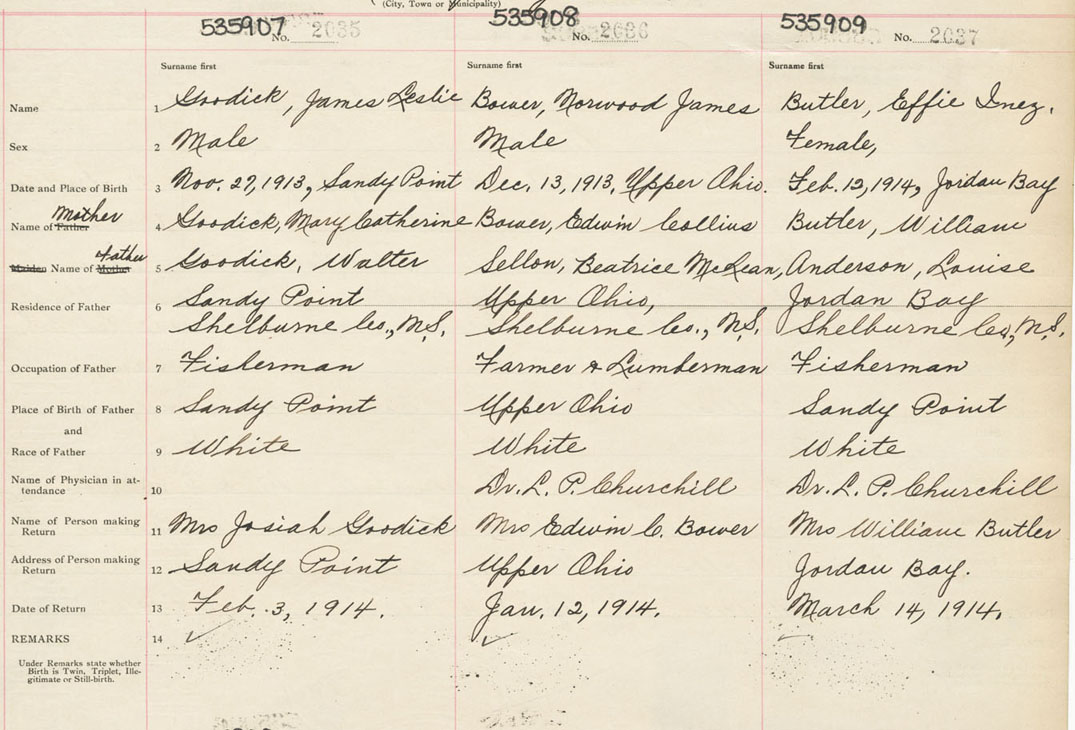 (City, Town or Municipality)
535907 No. 2035 535908 No. 2636 535909 No. 2037
Surname first Surname first Surname first
Name 1 Goodick, James Leslie Bower, Norwood James Butler, Effie Inez.
Sex 2 Male Male Female,
Date and Place of Birth 3 Nov. 27, 1913, Sandy Point Dec. 13, 1913, Upper Ohio. Feb. 12, 1914, Jordan Bay
Mother
Name of Father 4 Goodick, Mary Catherine Bower, Edwin Collins Butler, William
Father
Maiden Name of Mother 5 Goodick, Walter Sellon, Beatrice McLean, Anderson, Louise
Residence of Father 6 Sandy Point Upper Ohio, Jordan Bay
Shelburne Co., N.S. Shelburne Co., N.S. Shelburne Co., N.S.
Occupation of Father 7 Fisherman Farmer & Lumberman Fisherman
Place of Birth of Father 8 Sandy Point Upper Ohio Sandy Point
and
Race of Father 9 White White White
Name of Physician in at-
tendance 10 Dr. L. P. Churchill Dr. L. P. Churchill
Name of Person making
Return 11 Mrs Josiah Goodick Mrs Edwin C. Bower Mrs William Butler
Address of Person making
Return 12 Sandy Point Upper Ohio Jordan Bay.
Date of Return 13 Feb. 3, 1914. Jan. 12, 1914. March 14, 1914.
REMARKS 14
Under Remarks state whether
Birth is Twin, Triplet, Ille-
gitimate or Still-birth.